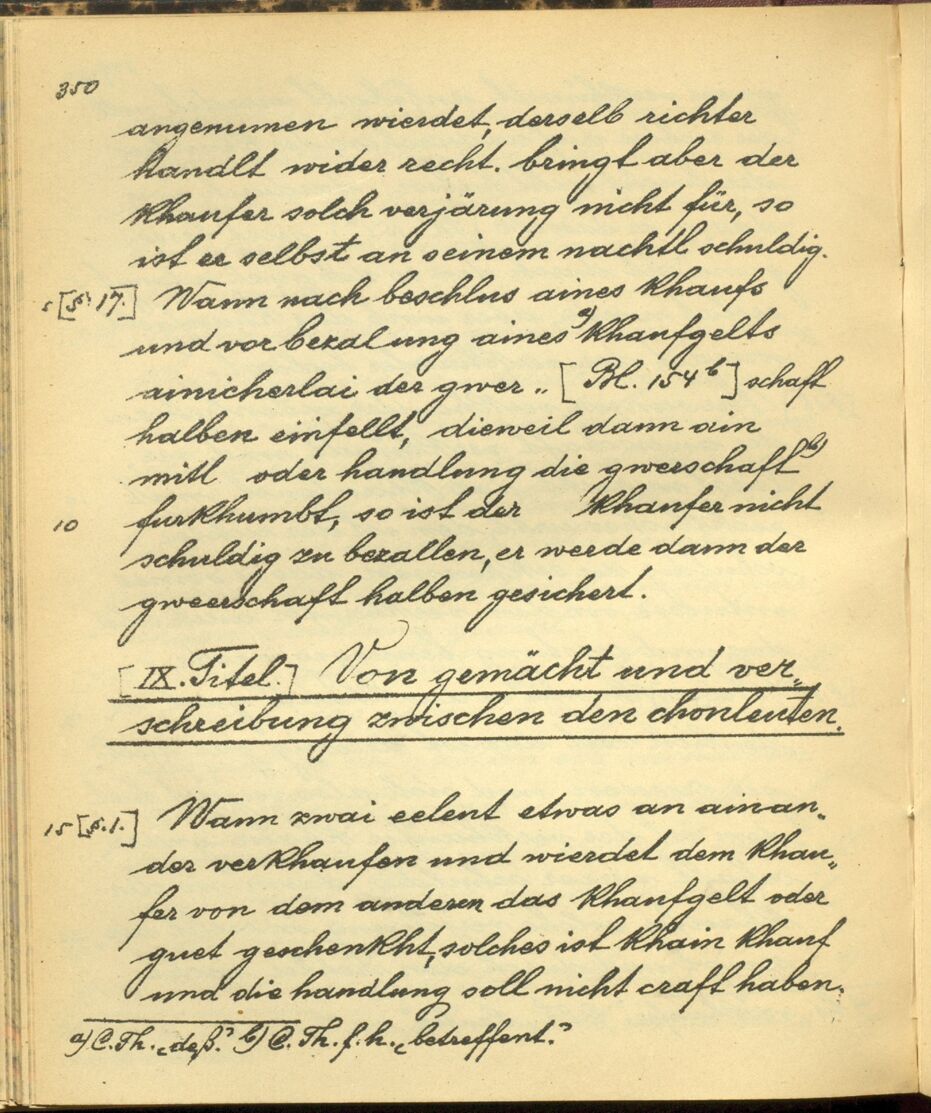 350
angenumen wierdet, derselb richter
handlt wider recht. bringt aber der
khaufer solch verjärung nicht für, so
ist er selbst an seinem nachtl schuldig.
5 [§ 17.] Wann nach beschlus aines khaufs
und vor bezalung aines a) khaufgelts
ainicherlai der gwer„ [Bl. 154 b] schaft
halben einfellt, dieweil dann ain
mitl oder handlung die gwerschaft b)
10 furkhumbt, so ist der khaufer nicht
schuldig zu bezallen, er werde dann der
gweerschaft halben gesichert.
[IX. Titel.] Von gemächt und ver„
schreibung zwischen den chonleuten.
15 [§. 1.] Wann zwai eelent etwas an ainan„
der verkhaufen und wierdet dem khau„
fer von dem anderen das khaufgelt oder
guet geschenkht, solches ist khain khauf
und die handlung soll nicht craft haben.
a) C. Th. „deß.“ b) C. Th. f. h. „betreffent.“